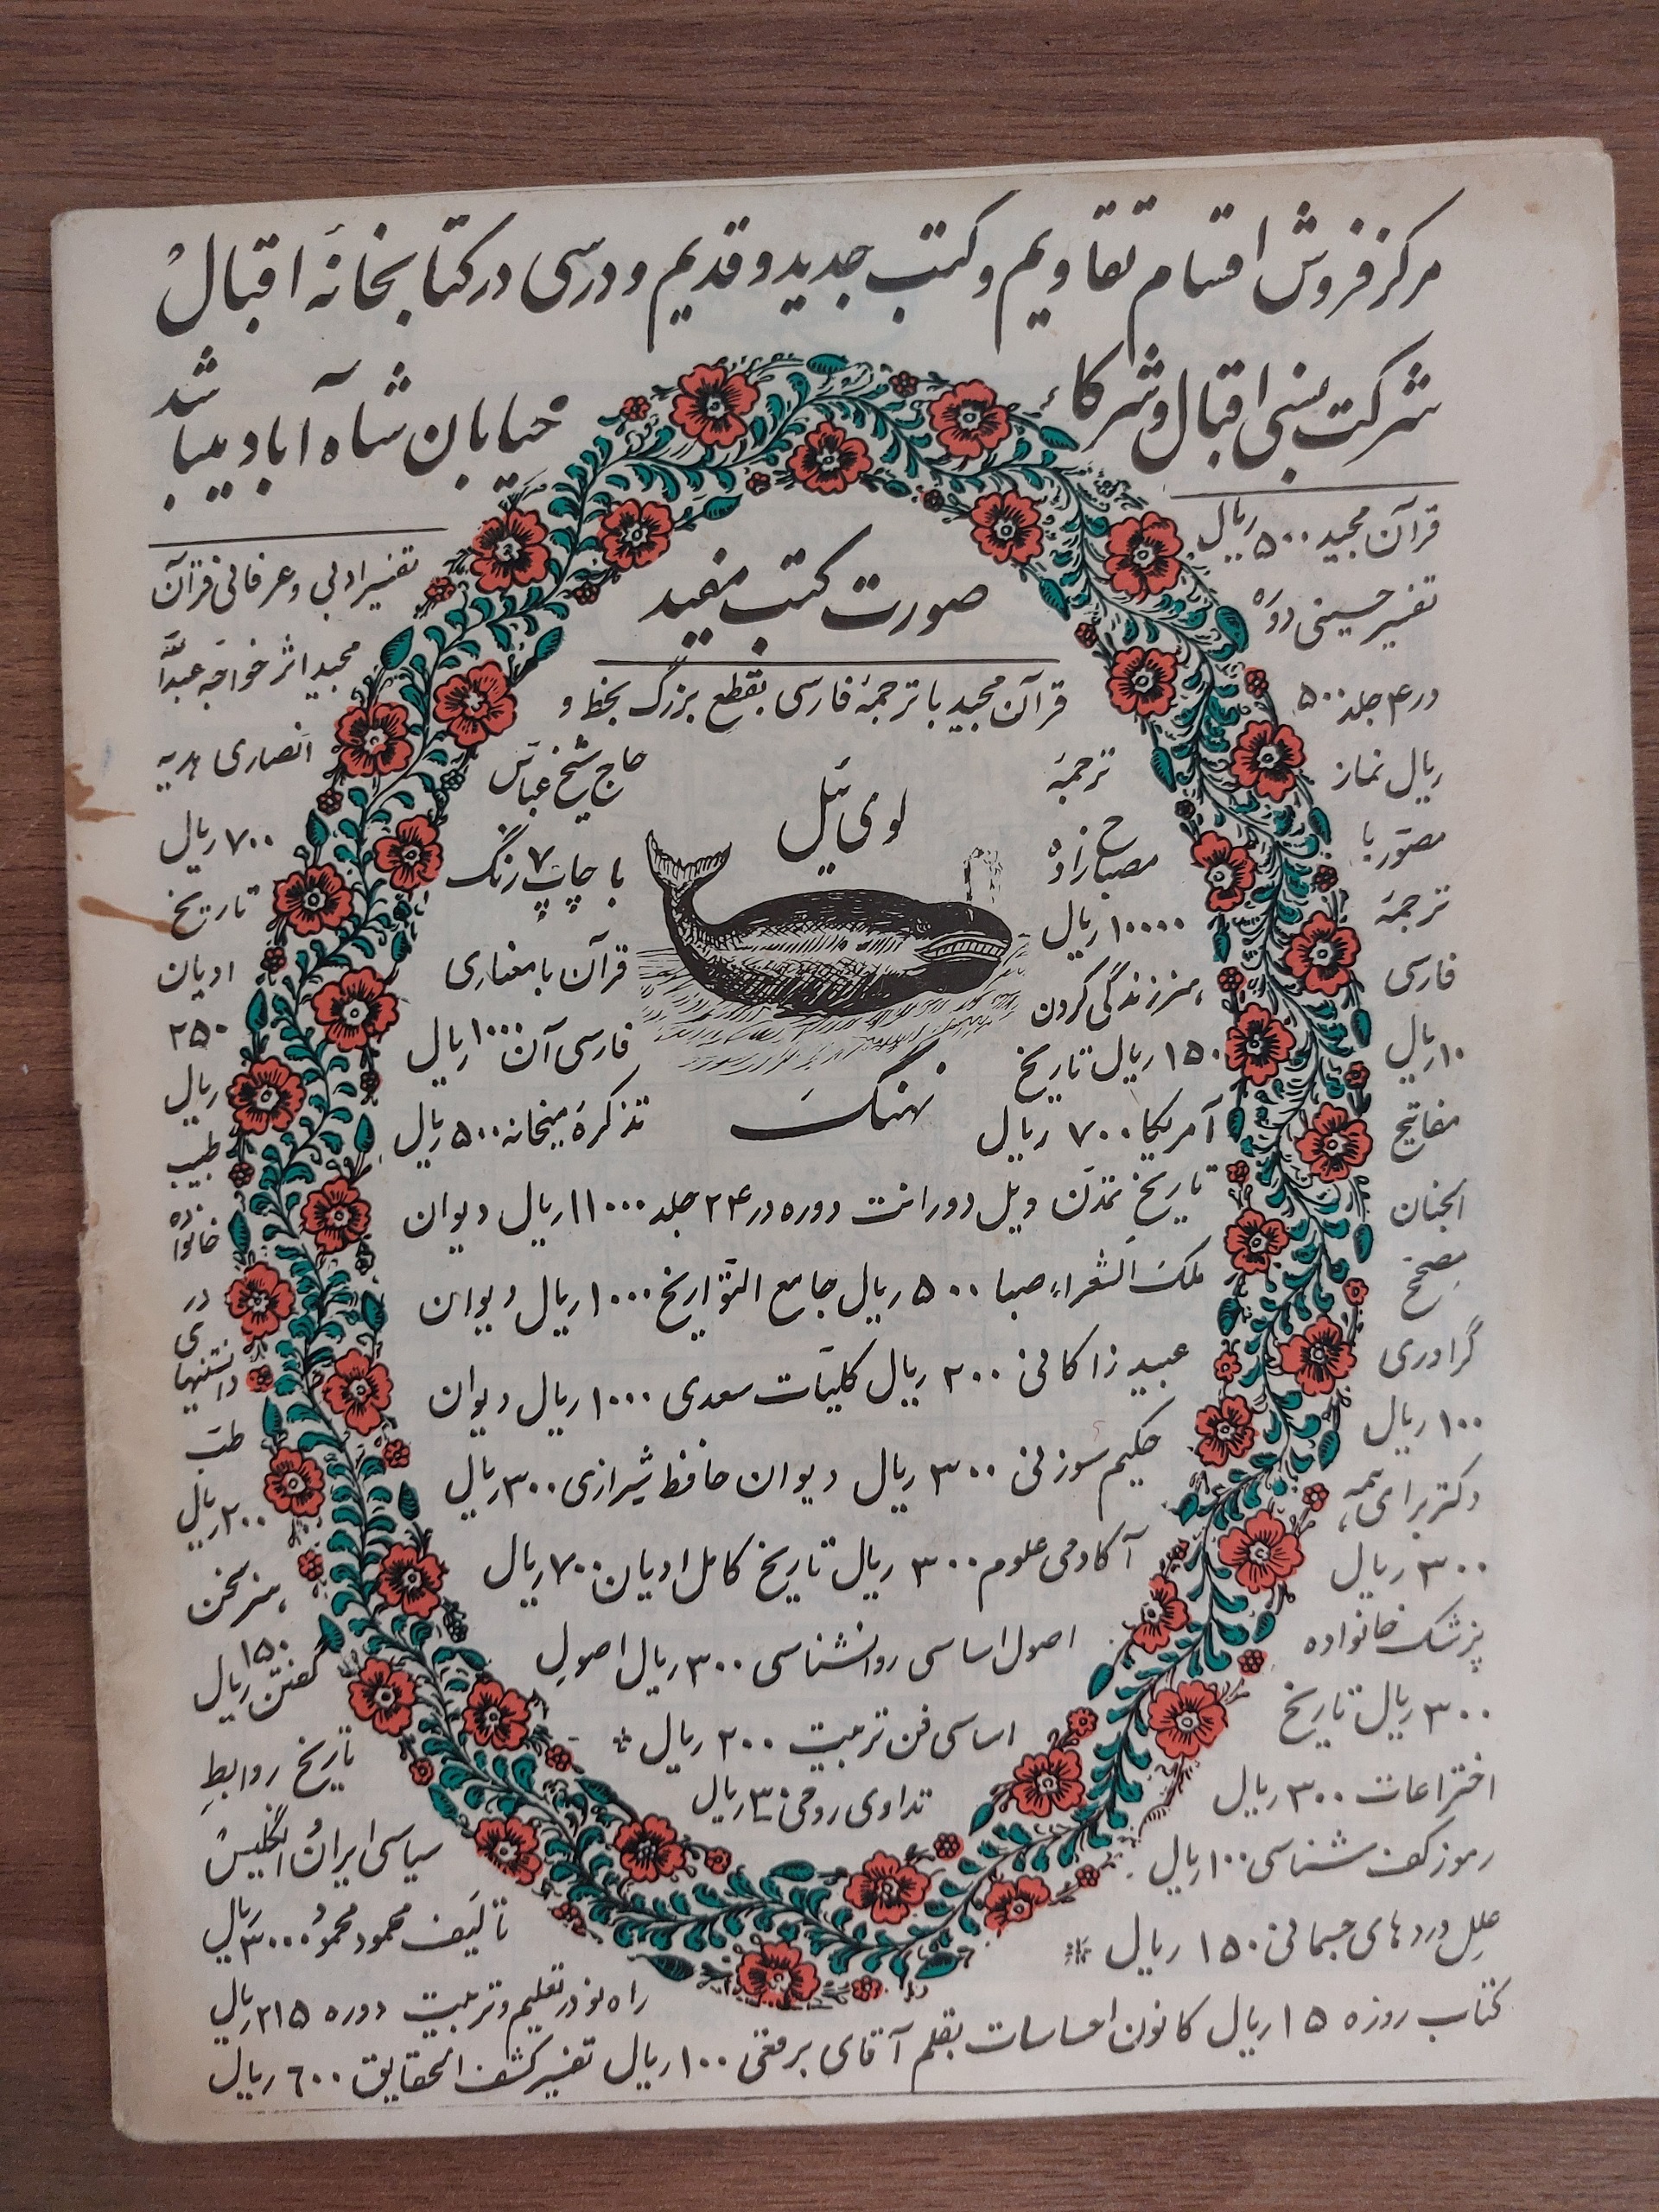 مرکز فروش اقسام تقاویم و کتب جدید و قدیم و درسی در کتابخانهٔ اقبال
شرکت نسبی اقبال و شرکاء خیابان شاه آباد میباشد
قرآن مجید ۵۰۰ ریال
تفسیر حسینی دوره
در ۴ جلد ۵۰۰
ریال نماز
مصور با
ترجمهٔ
فارسی
۱۰ ریال
مفاتیح
الجنان
مصحح
گراوری
۱۰۰ ریال
دکتر برای همه
۳۰۰ ریال
پزشک خانواده
۳۰۰ ریال تاریخ
اختراعات ۳۰۰ ریال
رموز کف شناسی ۱۰۰ ریال
علل دردهای جسمانی ۱۵۰ ریال
صورت کتب مفید
قرآن مجید با ترجمهٔ فارسی بقطع بزرگ بخط و
ترجمهٔ
مصباح زاده
۱۰۰۰۰ ریال
هنر زندگی کردن
۱۵۰ ریال تاریخ
آمریکا ۷۰۰ ریال
لوی ئیل
نهنگ
حاج شیخ عباس
با چاپ ۷ رنگ
قرآن با معنای
فارسی آن ۱۰۰۰ ریال
تذکرهٔ میخانه ۵۰۰ ریال
تاریخ تمدن ویل دورانت دوره در ۲۴ جلد ۱۱۰۰۰ ریال دیوان
ملک الشعراء صبا ۵۰۰ ریال جامع التواریخ ۱۰۰۰ ریال دیوان
عبید زاکانی ۲۰۰ ریال کلیات سعدی ۱۰۰۰ ریال دیوان
حکیم سوزنی ۳۰۰ ریال دیوان حافظ شیرازی ۳۰۰ ریال
آکادمی علوم ۳۰۰ ریال تاریخ کامل ادیان ۷۰۰ ریال
اصول اساسی روانشناسی ۳۰۰ ریال اصول
اساسی فن تربیت ۲۰۰ ریال
تداوی روحی ریال
تفسیر ادبی و عرفانی قرآن
مجید اثر خواجه عبدالله
انصاری هدیه
۷۰۰ ریال
تاریخ
ادیان
۲۵۰
ریال
طبیب
خانواده
در
دانستنیهای
طب
۲۰۰ ریال
هنر سخن
گفتن ۱۵۰ ریال
تاریخ روابط
سیاسی ایران و انگلیس
تألیف محمود محمود ۳۰۰۰ ریال
راه نو در تعلیم و تربیت دوره ۲۱۵ ریال
کتاب روزه ۱۵ ریال کانون احساسات بقلم آقای برقعی ۱۰۰ ریال تفسیر کشف الحقایق ۶۰۰ ریال